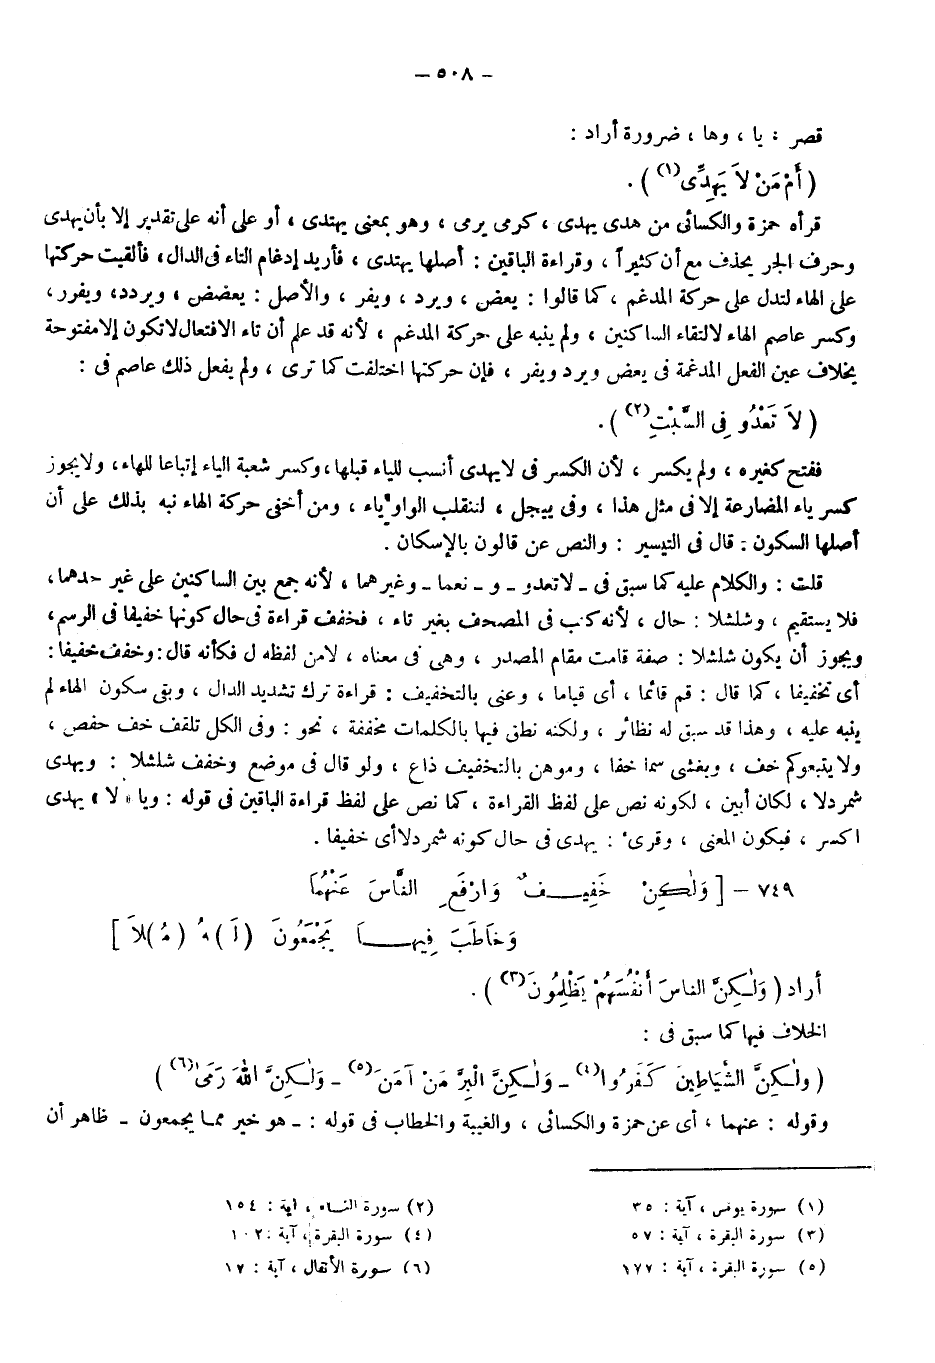 – ٥٠٨ –
قصر : يا ، وها ، ضرورة أراد :
( أَمْ مَنْ لاَ يَهِدِّى(١) ) .
قرأه حمزة والكسائى من هدى يهدى ، كرمى يرمى ، وهو بمعنى يهتدى ، أو على أنه على تقدير إلا بأن يهدى
وحرف الجر يحذف مع أن كثيراً ، وقراءة الباقين : أصلها يهتدى ، فأريد إدغام التاء فى الدال ، فألقيت حركتها
على الهاء لتدل على حركة المدغم ، كما قالوا : يعض ، ويرد ، ويفر ، والأصل : يعضض ، ويردد ، ويفرر ،
وكسر عاصم الهاء لالتقاء الساكنين ، ولم ينبه على حركة المدغم ، لأنه قد علم أن تاء الافتعال لا تكون إلا مفتوحة
بخلاف عين الفعل المدغمة فى يعض ويرد ويفر ، فإن حركتها اختلفت كما ترى ، ولم يفعل ذلك عاصم فى :
( لاَ تَعْدُو فِى السَّبْتِ(٢) ) .
ففتح كغيره ، ولم يكسر ، لأن الكسر فى لا يهدى أنسب للياء قبلها ، وكسر شعبة الياء إتباعا للهاء ، ولا يجوز
كسر ياء المضارعة إلا فى مثل هذا ، وفى ييجل ، لتنقلب الواو ياء ، ومن أخفى حركة الهاء نبه بذلك على أن
أصلها السكون : قال فى التيسير : والنص عن قالون بالإسكان .
قلت : والكلام عليه كما سبق فى – لا تعدو – و – نعما – وغيرهما ، لأنه جمع بين الساكنين على غير حدهما ،
فلا يستقيم ، وشلشلا : حال ، لأنه كتب فى المصحف بغير تاء ، فخفف قراءة فى حال كونها خفيفا فى الرسم ،
ويجوز أن يكون شلشلا : صفة قامت مقام المصدر ، وهى فى معناه ، لامن لفظه ل فكأنه قال : وخفف خفيفا :
أى تخفيفا ، كما قال : قم قائما ، أى قياما ، وعنى بالتخفيف : قراءة ترك تشديد الدال ، وبقى سكون الهاء لم
ينبه عليه ، وهذا قد سبق له نظائر ، ولكنه نطق فيها بالكلمات مخففة ، نحو : وفى الكل تلقف خف حفص ،
ولا يتبعوكم خف ، ويغشى سما خفا ، وموهن بالتخفيف ذاع ، ولو قال فى موضع وخفف شلشلا : ويهدى
شمردلا ، لكان أبين ، لكونه نص على لفظ القراءة ، كما نص على لفظ قراءة الباقين فى قوله : ويا « لا » يهدى
اكسر ، فيكون المعنى ، وقرىء : يهدى فى حال كونه شمردلا أى خفيفا .
٧٤٩ – [ وَلٰكِنْ خَفِيفٌ وَارْفَعِ النَّاسَ عَنْهُمَا
وَخَاطَبَ فِيهَا يَجْمَعُونَ (لَ)هُ (مُ)لاَ ]
أراد ( وَلٰكِنَّ الناسَ أَنْفُسَهُمْ يَظْلِمُونَ(٣) ) .
الخلاف فيها كما سبق فى :
( ولٰكِنَّ الشَّيَاطِينَ كَفَرُوا(٤) – وَلٰكِنَّ الْبِرَّ مَنْ آمَنَ(٥) – وَلٰكِنَّ اللهَ رَمَى(٦) )
وقوله : عنهما ، أى عن حمزة والكسائى ، والغيبة والخطاب فى قوله : – هو خير مما يجمعون – ظاهر أن
(١) سورة يونس ، آية : ٣٥ (٢) سورة النساء ، آية : ١٥٤
(٣) سورة البقرة ، آية : ٥٧ (٤) سورة البقرة ، آية : ١٠٢
(٥) سورة البقرة ، آية : ١٧٧ (٦) سورة الأنفال ، آية : ١٧